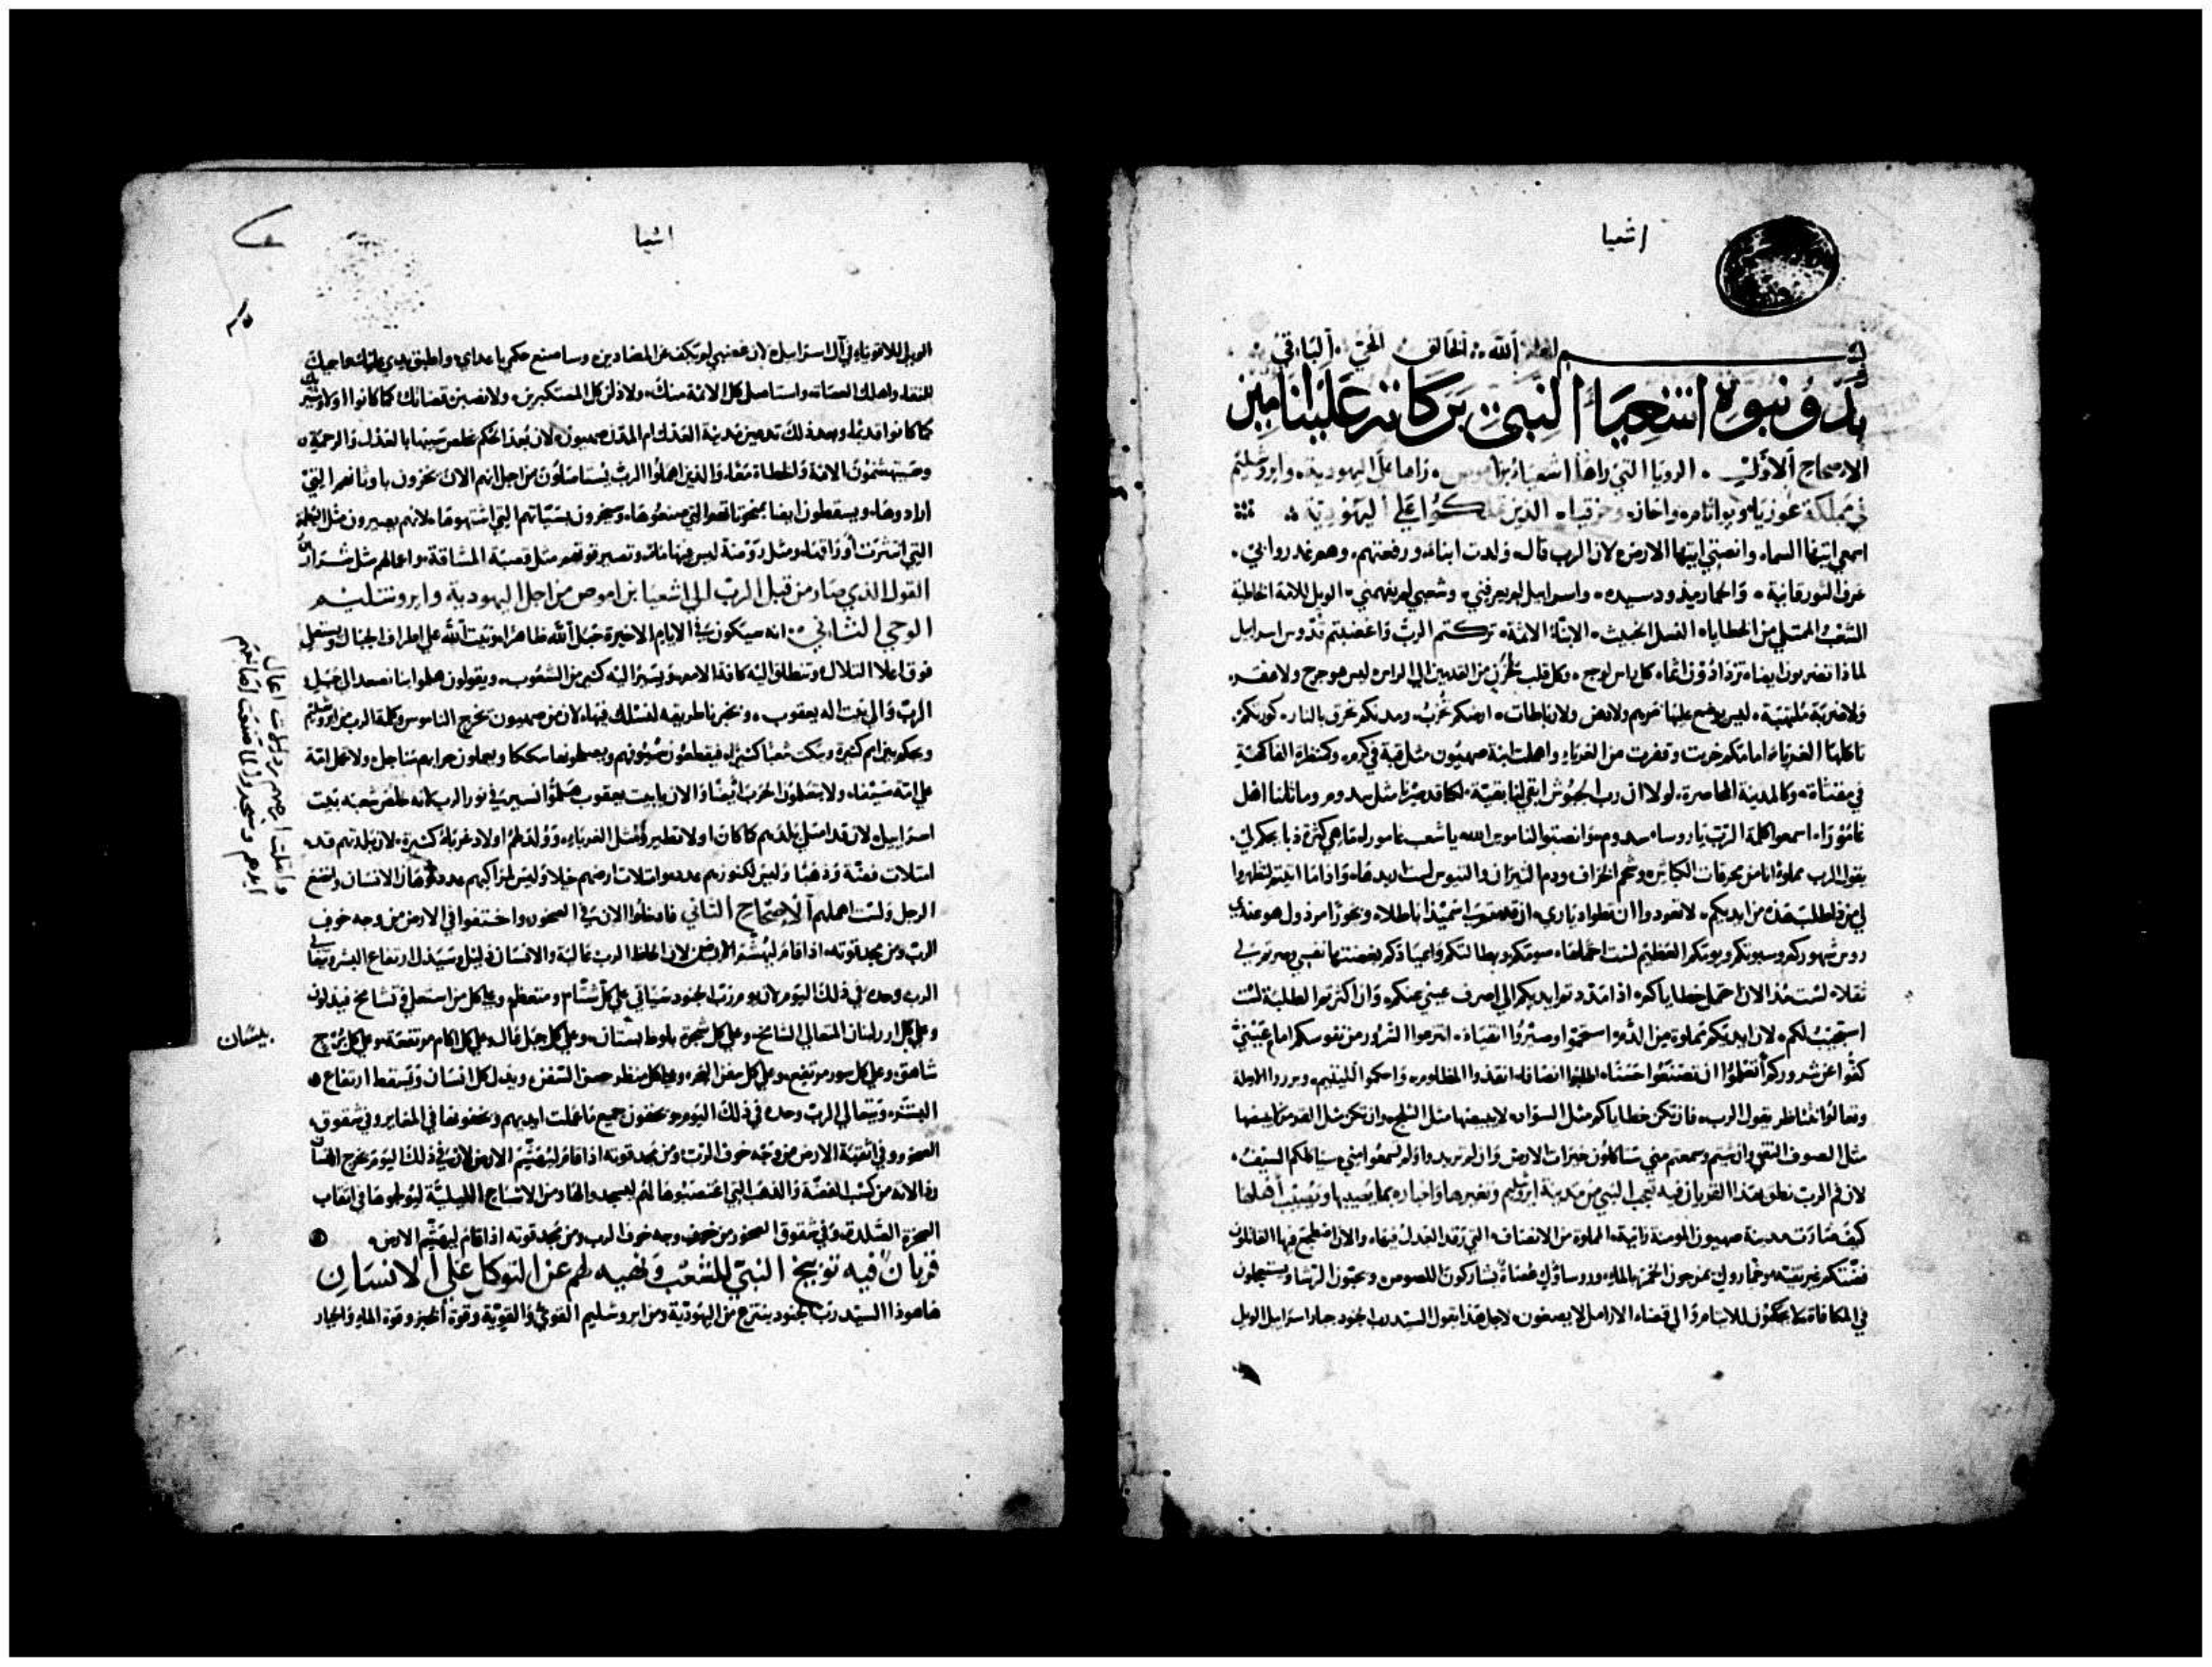 اشعيا
بسم الله الخالق الحي الباقي
بدو نبوة اشعيا النبي بركاته علينا امين
الاصحاح الاول الرويا التي راها اشعيا بن اموص راها على اليهودية وايروشليم
في مملكة عوزيا ويواثام واحاز وحزقيا الذين ملكوا على اليهودية
اسمعي ايتها السماء وانصتي ايتها الارض لان الرب قال ولدت ابناء ورفعتهم وهم غدروا بي
عرف الثور قانيه والحمار مذود سيده واسراييل لم يعرفني وشعبي لم يفهمني الويل للامة الخاطية
الشعب الممتلي من الخطايا النسل الخبيث الابناء الاثمة تركتم الرب واغضبتم قدوس اسراييل
لماذا تضربون ايضا تزدادون اثما كل راس لوجع وكل قلب لحزن من القدمين الى الراس ليس هو جرح ولا
ولا ضربة ملتهبة ليس يوضع عليها مرهم ولا دهن ولا رباطات ارضكم تخرب ومدنكم تحرق بالنار كورتكم
تاكلها الغرباء امامكم خربت وقفرت من الغرباء واهملت ابنة صهيون مثل قبة في كرم وكمنظرة الفاكهة
في مقثاة وكالمدينة المحاصرة لولا ان رب الجنوش ابقى لنا بقية لكنا قد صرنا مثل سدوم وماثلنا اهل
غامورا اسمعوا كلمة الرب يا روسا سدوم وانصتوا لناموس الله يا شعب غامورا ما هي كثرة ذبايحكم لي
يقول الرب مملوة انا من محرقات الكباش وشحم الخراف ودم الثيران والتيوس لست اريدها واذا ما اتيتم لتظهروا
لي من ذا طلب هذه من ايديكم لا تعودوا ان تطوا دياري ان قدمتم سميذا باطلا وبخورا مرذول هو عندي
روس شهوركم وسبوتكم ويومكم العظيم لست احتملها صومكم وبطالتكم واعيادكم بغضتها نفسي وصرتم لي
ثقلا لست منذ الان احمل خطاياكم اذا مددتم ايديكم الي اصرف عيني عنكم وان اكثرتم الطلبة لست
استجيب لكم لان ايديكم مملوة من الدم استحموا وصيروا انقياء انزعوا الشرور من نفوسكم امام عيني
كفوا عن شروركم تعلموا ان تصنعوا حسنا اطلبوا انصافا انقذوا المظلوم واحكموا لليتيم وبرروا الارملة
وتعالوا نتناظر يقول الرب فان تكن خطاياكم مثل السواد لابيضها مثل الثلج وان تكن مثل القرمز ابيضها
مثل الصوف النقي وان شيتم وسمعتم مني ستاكلون خيرات الارض وان لم تريدوا ولم تسمعوا مني سياكلكم السيف
لان فم الرب نطق بهذا القربان فيه تعجب النبي من مدينة ايروشليم وتغييرها واخباره بما يصيبها ويصيب اهلها
كيف صارت مدينة صهيون المومنة زانية المملوة من الانصاف التي رقد العدل فيها والان اضطجع فيها القاتلون
فضتكم غير نقية وخماروك يمزجون الخمر بالماء وروساؤك عصاة يشاركون اللصوص ويحبون الرشا ويستعجلون
في المكافاة لا يحكمون للايتام والى قضاء الارامل لا يصغون لاجل هذا يقول السيد رب الجنود جبار اسراييل الويل
اشيا
الويل للاقوياء في آل اسراييل لان غضبي لم يكف عن المضادين وساصنع حكم باعداي واطبق يدي عليك
للنقاء واهلك العصاة واستاصل كل الاثمة منك ولاذلن كل المستكبرين ولانصبن قضاتك كما كانوا اولا
كما كانوا قديما وبعد ذلك تدعين مدينة العدل ام المدن صهيون لان بعد الحكم خلص سبيها بالعدل والرحمة
وستهشمون الاثمة والخطاة معا والذين اهملوا الرب يستاصلون من اجل انهم الان يخزون باوثانهم التي
ارادوها ويسقطون ايضا بمنحوتاتهم التي صنعوها ويخزون بستاتهم التي اشتهوها لانهم يصيرون مثل البطمة
التي انتثرت اوراقها ومثل روضة ليس فيها ماء وتصير قوتهم مثل قصبة المشاقة واعمالهم مثل شرار
القول الذي صار من قبل الرب الى اشعيا بن اموص من اجل اليهودية وايروشليم
الوحي الثاني انه سيكون في الايام الاخيرة جبل الله ظاهرا وبيت الله على اطراف الجبال ويستعلي
فوق اعلا التلال وتنطلق اليه كافة الامم ويسير اليه كثير من الشعوب ويقولون هلموا بنا نصعد الى جبل
الرب والى بيت اله يعقوب ويخبرنا طريقه لنسلك فيها لان من صهيون تخرج الناموس وكلمة الرب من ايروشليم
ويحكم بين امم كثيرة ويبكت شعبا كثيرا فيقطعون سيوفهم ويصنعونها سككا ويجعلون حرابهم مناجل ولا تحمل امة
على امة سيفا ولا يتعلمون الحرب ايضا والان يا بيت يعقوب هلموا نسير في نور الرب لانه خلص شعبه بيت
اسراييل لان قد امتلى بلدهم كما كان اولا تطيرا مثل الغرباء وولد لهم اولاد غرباء كثيرة لان بلدتهم قد
امتلات فضة وذهبا وليس لكنوزهم عدد وامتلات ارضهم خيلا وليس لمراكبهم عدد الانسان واتضع
الرجل ولست اهملهم الاصحاح الثاني فادخلوا الان في الصخور واختفوا في الارض من وجه خوف
الرب ومن مجد قوته اذا قام ليهشم الارض لان الحاظ الرب عالية والانسان ذليل وسيذل ارتفاع البشر وتعالى
الرب وحده في ذلك اليوم لان يوم رب الجنود سياتي على كل شتام ومتعظم وعلى كل من استعلى وتشامخ فيذلون
وعلى كل ارز لبنان المتعالي الشامخ وعلى كل شجرة بلوط بستان وعلى كل جبل عال وعلى كل اكام مرتفعة وعلى كل برج
شاهق وعلى كل سور مرتفع وعلى كل سفن البحر وعلى كل منظر حسن السفن ويذل كل انسان ويسقط ارتفاع
البشر ويتعالى الرب وحده في ذلك اليوم ويخفون جميع ما عملت ايديهم ويخفونها في المغاير وفي شقوق
الصخور وفي اثقبة الارض من وجه خوف الرب ومن مجد قوته اذا قام ليهشم الارض لان في ذلك اليوم يخرج الانسان
رذالاته من كتب الفضة والذهب التي اصطنعوها لهم ليسجدوا لها
الصخرة الصلدة وفي شقوق الصخور من وجه خوف الرب ومن مجد قوته اذا قام ليهشم الارض
قربان فيه توبيخ النبي للشعب ونهيه لهم عن التوكل على الانسان
هاهوذا السيد رب الجنود ينتزع من اليهودية ومن ايروشليم القوي والقوية وقوة الخبز وقوة الماء والجبار
وامتلت ارضهم رذولات اعمال
ايديهم وسجدوا لما صنعت اصابعهم
بيسان